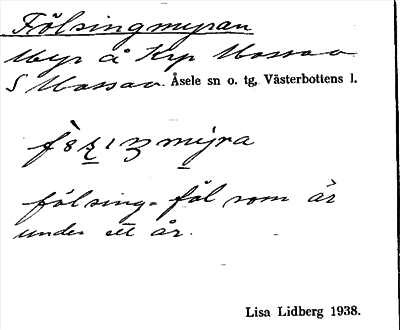 Fölsingmyran
Myr å Krp Mossavan
S Mossavan. Åsele sn o. tg. Västerbottens l.
fölsing = föl som är
under ett år.
Lisa Lidberg 1938.